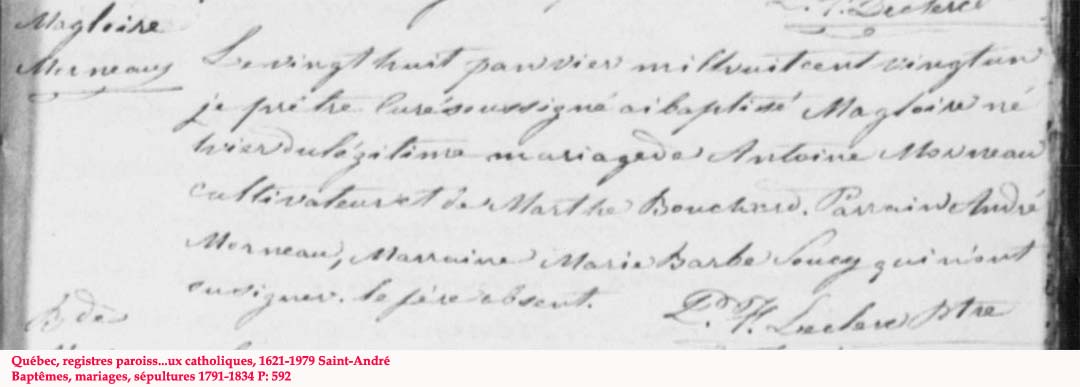 Leclerc
Magloire
Morneau
Le vingt huit janvier mil huit cent vingt un
je prêtre curé soussigné ai baptisé Magloire né
hier du légitime mariage de Antoine Morneau
cultivateur et de Marthe Bouchard. Parrain André
Morneau, Marraine Marie Barbe Soucy qui n'ont
su signer. le père absent.
F. Leclerc Ptre
B de
Québec, registres paroiss...ux catholiques, 1621-1979 Saint-André
Baptêmes, mariages, sépultures 1791-1834 P: 592